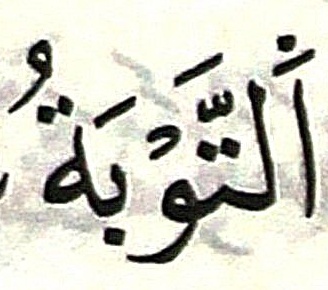 اَلتَّوْبَةُ